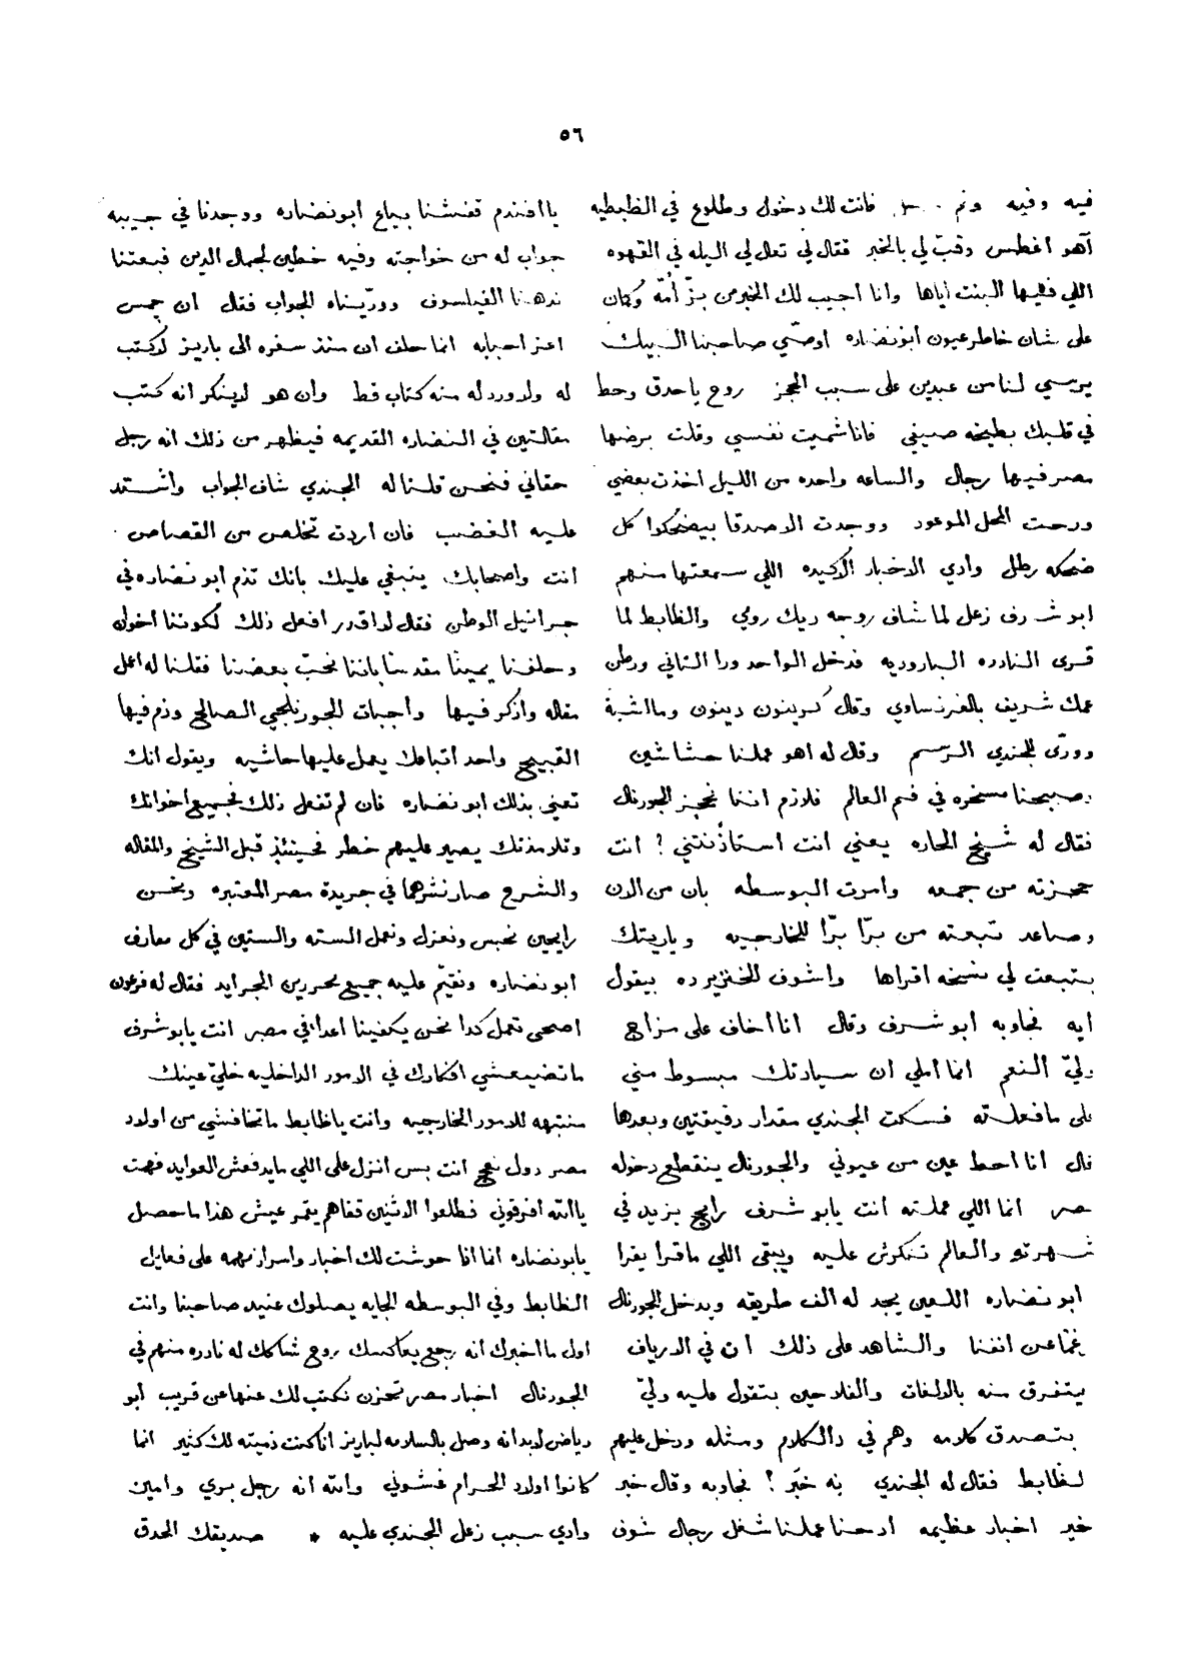 ٥٦
فيه وفيه فانت لك دخول وطلوع في الظبطيه
آهو اغطس وقب لي بالخبر فقال لي تعال لي اليله في القهوه
اللي فيها البنت اياها وانا اجيب لك الخبر من بزّ أمّه وكمان
على شان خاطر عيون ابو نضاره اوصّي صاحبنا البيك
يرسي لنا من عبدين على سبب الحجز روح يا حدق وحط
في قلبك بطيخه صيفي فانا شميت نفسي وقلت برضها
مصر فيها رجال والساعه واحده من الليل اخذت بعضي
ورحت المحل الموعود ووجدت الاصدقا بيضحكوا كل
ضحكه رطل وادي الاخبار الاكيده اللي سمعتها منهم
ابو شرف زعل لما شاف روحه ديك رومي والظابط لما
قرى النادره الباروديه فدخل الواحد ورا التاني ورطن
عمك شريف بالفرنساوي وقال كوينون ديبنون وما اشبه
وورّى للجندي الرّسم وقال له اهو عملنا حشاشين
وصبحنا مسخره في فم العالم فلازم اننا نحجز الجورنال
فقال له شيخ الحاره يعني انت استأذنتني ؟ انت
حجزته من جمعه وامرت البوسطه بان من الان
وصاعد تبعته من برّا برّا للخارجيه وياريتك
بتبعت لي نسخه اقراها واشوف الخنزير ده بيقول
ايه فجاوبه ابو شرف وقال انا اخاف على مزاج
وليّ النعم انما املي ان سيادتك مبسوط مني
على ما فعلته فسكت الجندي مقدار دقيقتين وبعدها
قال انا احط عين من عيوني والجورنال ينقطع دخوله
مصر انما اللي عملته انت يابو شرف رايح يزيد في
شهرته والعالم تنكرش عليه ويبقى اللي ما قرا يقرا
ابو نضاره اللعين يجد له الف طريقه ويدخل الجورنال
غمّا عن انفنا والشاهد على ذلك ان في الارياف
بيتفرق منه بالالفات والفلاحين بتقول عليه وليّ
بتصدق كلامه وهم في دا الكلام ومثله ودخل عليهم
لظابط فقال له الجندي به خبّر ؟ فجاوبه وقال خبر
خير اخبار عظيمه ادحنا عملنا شغل رجال شوف
يا افندم تفنشنا بياع ابو نضاره ووجدنا في جيبه
جواب له من خواجته وفيه خطين لجمال الدين فبعتنا
ندهنا الفيلسوف وورّيناه الجواب فقال ان جمس
اعز احبابه انما حلف ان منذ سفره الى باريز لا كتب
له ولا ورد له منه كتاب قط وان هو لا ينكر انه كتب
مقالتين في النضاره القديمه فيظهر من ذلك انه رجل
حقاني فنحن قلنا له الجندي شاف الجواب واشتد
عليه الغضب فان اردت تخلص من القصاص
انت واصحابك ينبغي عليك بانك تذم ابو نضاره في
جرانيل الوطن فقال لا اقدر افعل ذلك لكوننا اخوان
وحلفنا يمينا مقدسا باننا نحبّ بعضنا فقلنا له اعمل
مقاله واذكر فيها واجبات الجورنلجي الصالح وذم فيها
القبيح واحد اتباعك يعمل عليها حاشيه ويقول انك
تعني بذلك ابو نضاره فان لم تفعل ذلك فجميع اخوانك
وتلامذتك يصير عليهم خطر فحينئذٍ قبل الشيخ والمقاله
والشرح صار نشرهما في جريدة مصر المعتبره ونحن
رايحين نحبس ونعزل ونعمل السته والستين في كل معارف
ابو نضاره ونقيّم عليه جميع محررين الجرايد فقال له فرعون
اصحى تعمل كدا نحن يكفينا اعدا في مصر انت يابو شرف
ما تضيعشي افكارك في الامور الداخليه خليّ عينك
منتبهه للامور الخارجيه وانت يا ظابط ما تخافشي من اولاد
مصر دول نعج انت بس انزل على اللي ما يدفعش العوايد فهمت
يا الله أفرقوني فطلعوا الاثنين قفاهم يقمر عيش هذا ما حصل
يابو نضاره انما انا حوشت لك اخبار واسرار مهمه على فعايل
الظابط وفي البوسطه الجايه يصلوك عنيد صاحبنا وانت
اول ما اخبرك انه رجع يعاكسك روح شاكك له نادره منهم في
الجورنال اخبار مصر تحزن نكتب لك عنها عن قريب ابو
رياض لا بد انه وصل بالسلامه لباريز انا كنت ذميته لك كثير انما
كانوا اولاد الحرام غشوني والله انه رجل بري وامين
وادي سبب زعل الجندي عليه * صديقك الحدق